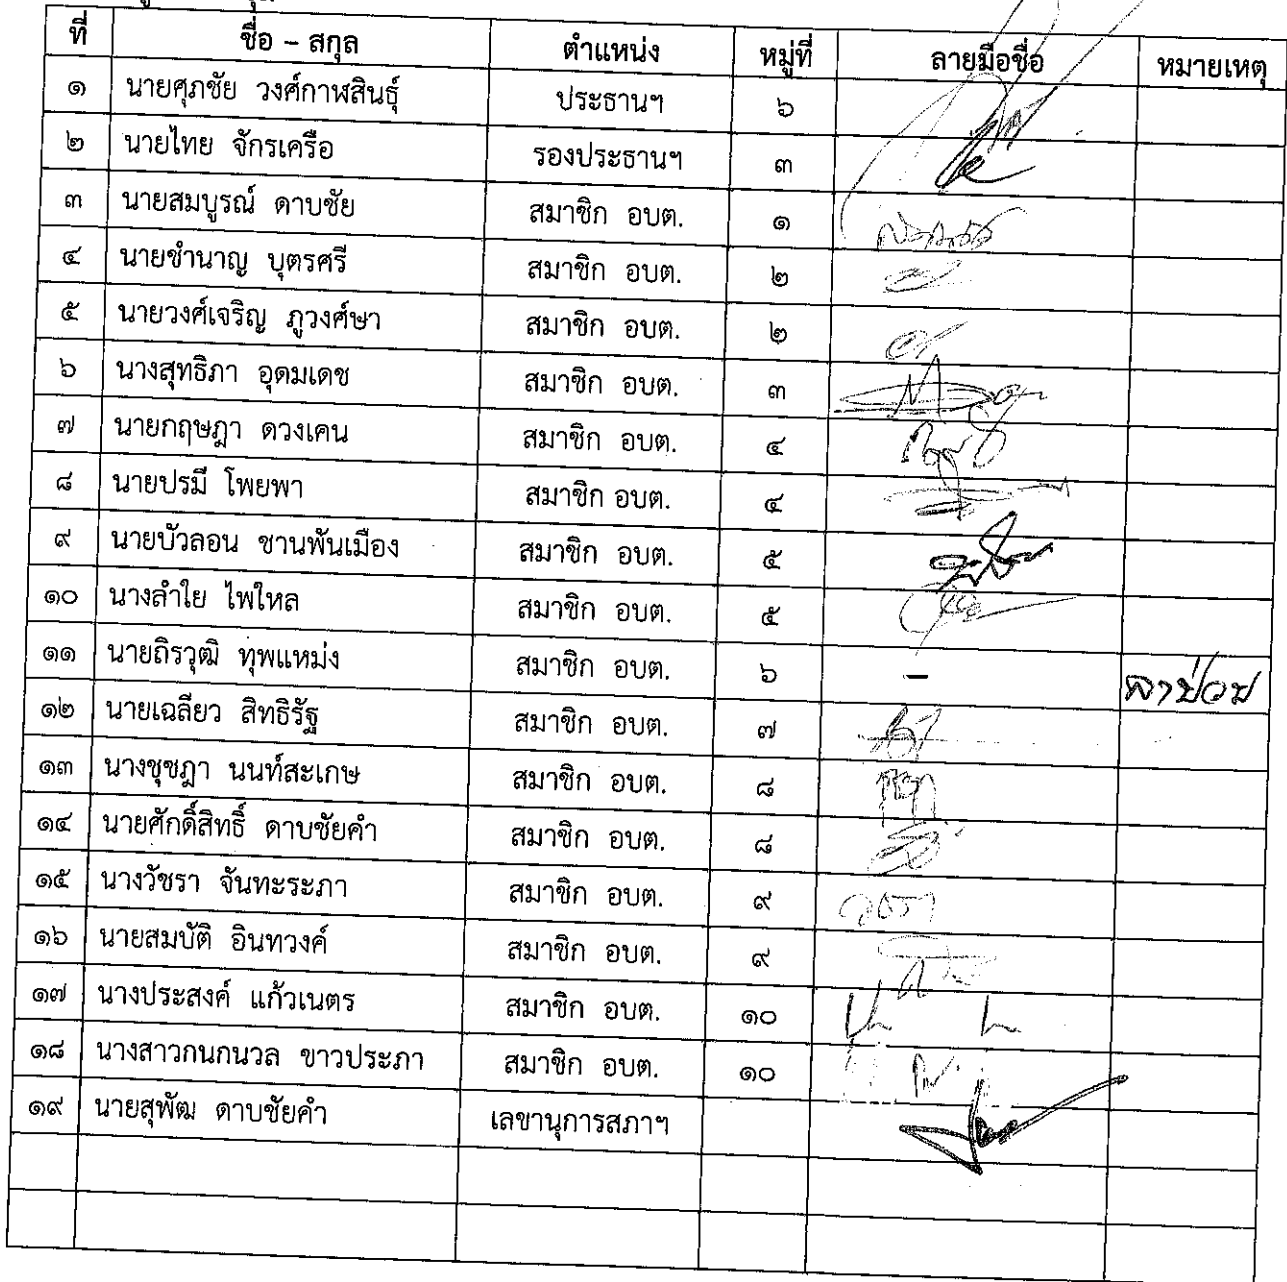 ที่ ชื่อ – สกุล ตำแหน่ง หมู่ที่ ลายมือชื่อ หมายเหตุ
๑ นายศุภชัย วงศ์กาฬสินธุ์ ประธานฯ ๖
๒ นายไทย จักรเครือ รองประธานฯ ๓
๓ นายสมบูรณ์ ดาบชัย สมาชิก อบต. ๑
๔ นายชำนาญ บุตรศรี สมาชิก อบต. ๒
๕ นายวงศ์เจริญ ภูวงศ์ษา สมาชิก อบต. ๒
๖ นางสุทธิภา อุดมเดช สมาชิก อบต. ๓
๗ นายกฤษฎา ดวงเคน สมาชิก อบต. ๔
๘ นายปรมี โพยพา สมาชิก อบต. ๔
๙ นายบัวลอน ชานพันเมือง สมาชิก อบต. ๕
๑๐ นางลำใย ไพใหล สมาชิก อบต. ๕
๑๑ นายถิรวุฒิ ทุพแหม่ง สมาชิก อบต. ๖ – ลาป่วย
๑๒ นายเฉลียว สิทธิรัฐ สมาชิก อบต. ๗
๑๓ นางชุชฎา นนท์สะเกษ สมาชิก อบต. ๘
๑๔ นายศักดิ์สิทธิ์ ดาบชัยคำ สมาชิก อบต. ๘
๑๕ นางวัชรา จันทะระภา สมาชิก อบต. ๙
๑๖ นายสมบัติ อินทวงค์ สมาชิก อบต. ๙
๑๗ นางประสงค์ แก้วเนตร สมาชิก อบต. ๑๐
๑๘ นางสาวกนกนวล ขาวประภา สมาชิก อบต. ๑๐
๑๙ นายสุพัฒ ดาบชัยคำ เลขานุการสภาฯ